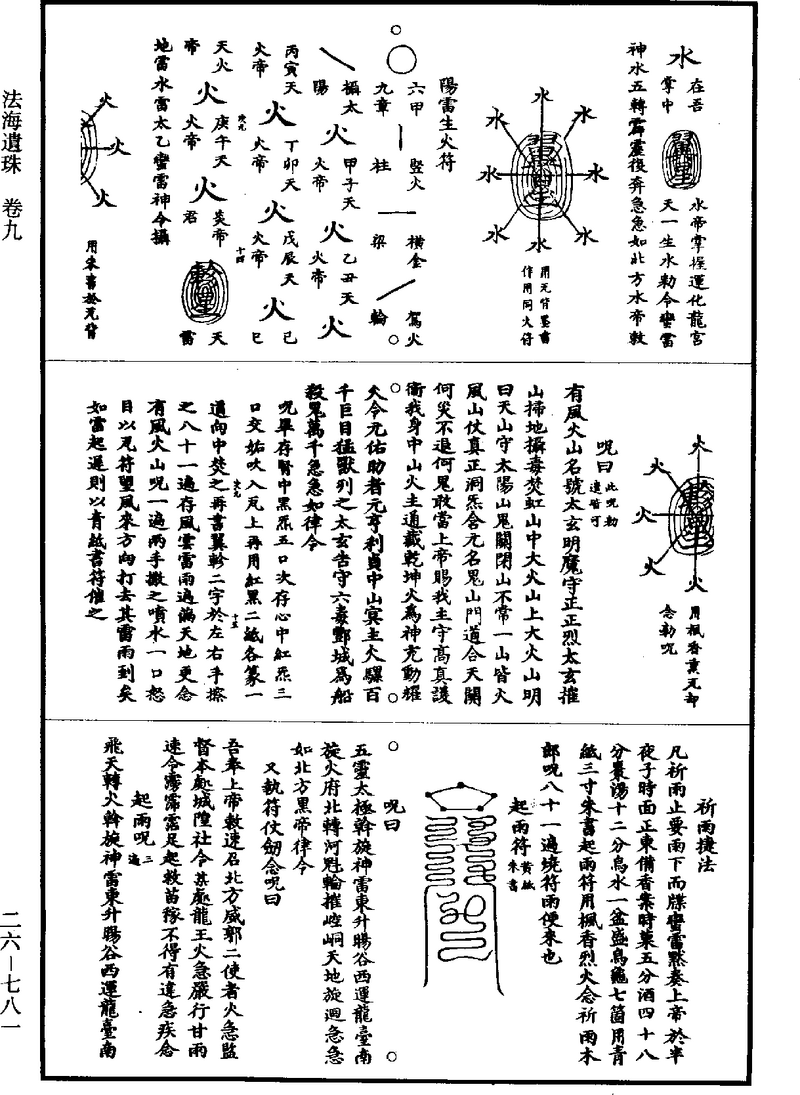 法海遺珠　卷九
二六—七八一
水　在吾掌中　水帝掌握運化龍宮
天一生水勅令蠻雷
神水五轉霹靂後奔急急如北方水帝敕
水
水
水
水
水
水
水
水
用瓦背墨書
作用同火符
陽雷生火符
六甲　豎火　橫金　駕火
九章　柱　梁　輪
攝太　火　甲子天　火　乙丑天　火
陽　火帝　火帝
丙寅天　火　丁卯天　火　戊辰天　火　己
火帝　火帝　火帝　巳
天火　火　庚午天　火　炎帝　天
帝　火帝　君　雷
地雷水雷太乙蠻雷神令攝
火
火
火
用朱書於瓦背
火
火
火
火
火
用楓香熏瓦却
念勅呪
呪曰　此呪勅遣皆可
有風火山名號太玄明魔守正正烈太玄摧
山掃地攝毒焚虹山中大火山上大火山明
曰天山守太陽山鬼關閉山不常一山皆火
風山仗真正洞炁含元名鬼山門道合天關
何災不退何鬼敢當上帝賜我主守高真護
衞我身中山火主通截乾坤火為神充動燿
久令元佑助者元亨利貞中山冥主火騾百
千巨目猛獸列之太玄告守六毒酆城為船
殺鬼萬千急急如律令
呪畢存腎中黑炁五口次存心中紅炁三
口交姤吹入瓦上再用紅黑二紙各篆一
道向中焚之再書翼軫二字於左右手擦
之八十一遍存風雲雷雨遍滿天地更念
有風火山呪一遍兩手撒之噴水一口怒
目以瓦符望風來方向打去其雷雨到矣
如雷起遲則以青紙書符催之
祈雨捷法
凡祈雨止要雨下而牒蠻雷黙奏上帝於半
夜子時面正東備香案時菓五分酒四十八
分棗湯十二分烏水一盆盛烏龜七箇用青
紙三寸朱書起雨符用楓香烈火念祈雨木
郎呪八十一遍燒符雨便來也
起雨符　黃紙朱書
呪曰
五靈太極斡旋神雷東升暘谷西運龍臺南
旋火府北轉河魁輪摧崆峒天地旋迴急急
如北方黑帝律令
又執符仗劒念呪曰
吾奉上帝敕速召北方威郭二使者火急監
督本處城隍社令某處龍王火急嚴行甘雨
速令霶霈霑足起救苗稼不得有違急疾念
起雨呪　三遍
飛天轉火斡旋神雷東升暘谷西運龍臺南